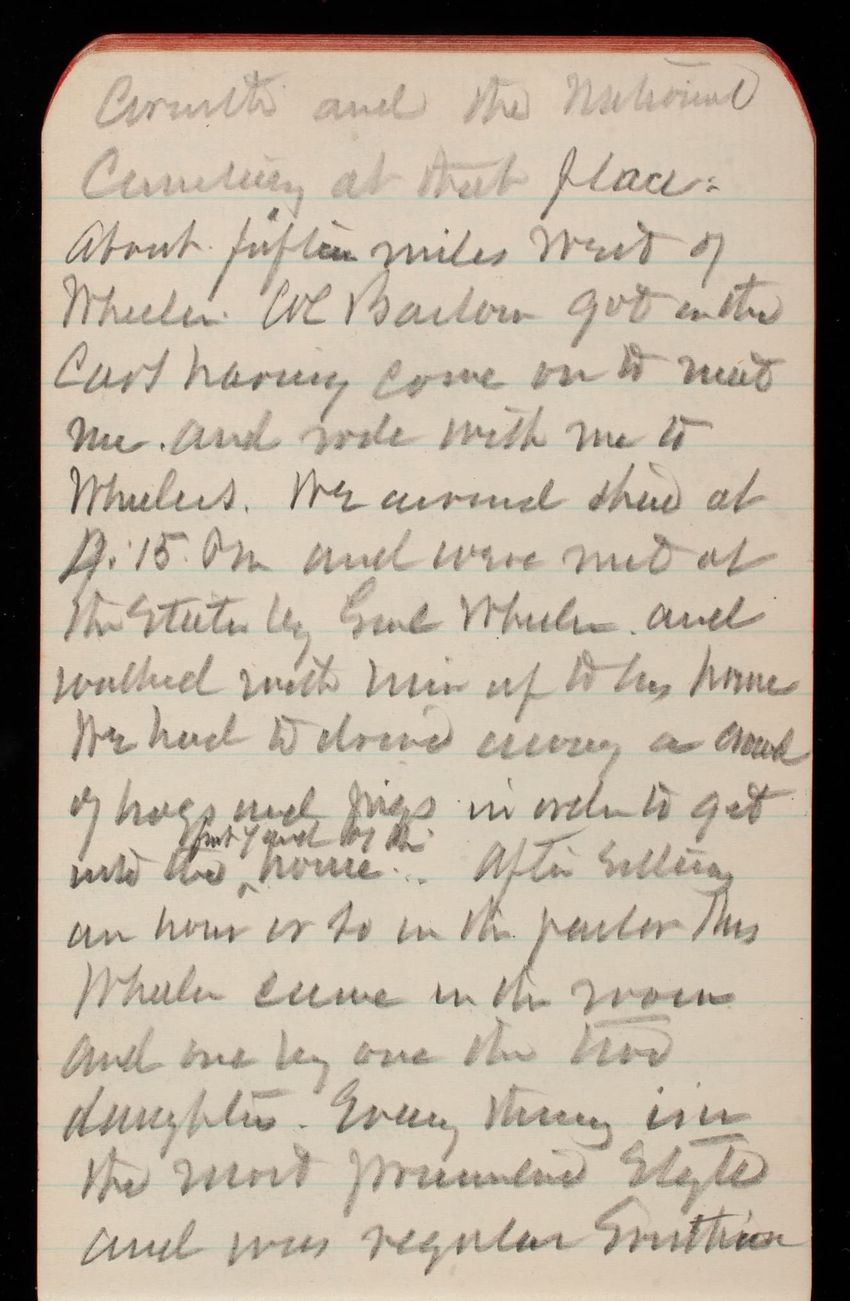 Corinth and the National
Cemetery at that place.
About fifteen miles West of
Wheeler. Col Barlow got in the
Cars having come on to meet
me. and rode with me to
Wheelers. We arrived there at
15 Pm and were met at
the Station by Genl Wheeler and
walked with him up to his home
We had to drive away a crowd
of hogs and pigs in order to get
front yard of the
into the ^ home. After sitting
an hour or so in the parlor Mrs
Wheeler came in the room
and one by one the two
daughters. Every thing is in
the most primative Style
and was regular Southern